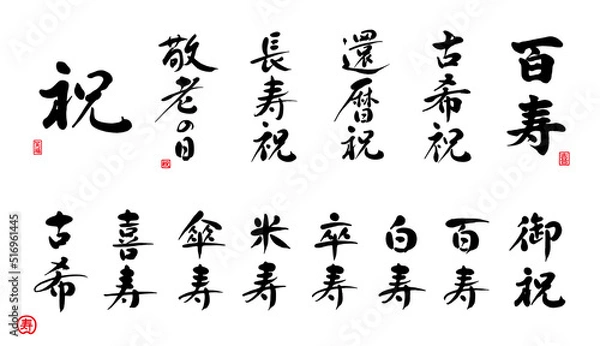 祝
敬老の日
長寿祝
還暦祝
古希祝
百寿
古希
喜寿
傘寿
米寿
卒寿
白寿
百寿
御祝
寿
Adobe Stock | #516961445